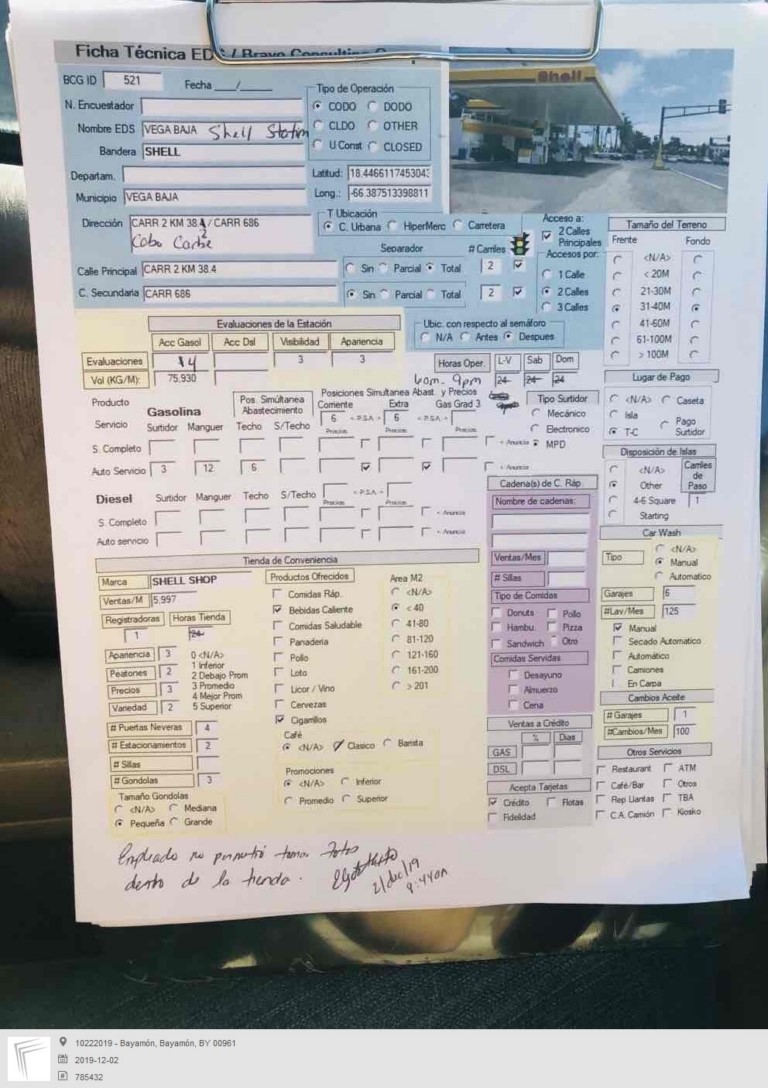 Ficha Técnica EDS / Bravo Consulting
BCG ID 521 Fecha ___/___
N. Encuestador
Nombre EDS VEGA BAJA Shell Station
Bandera SHELL
Departam.
Municipio VEGA BAJA
Tipo de Operación
CODO DODO
CLDO OTHER
U Const CLOSED
Latitud: 18.4466117453043
Long.: -66.387513398811
Shell
Dirección CARR 2 KM 38.4 / CARR 686
2
Cabo Caribe
T Ubicación
C. Urbana HiperMerc Carretera
Separador # Carriles
Calle Principal CARR 2 KM 38.4 Sin Parcial Total 2
C. Secundaria CARR 686 Sin Parcial Total 2
Acceso a:
2 Calles Principales
Accesos por:
1 Calle
2 Calles
3 Calles
Tamaño del Terreno
Frente Fondo
<N/A>
< 20M
21-30M
31-40M
41-60M
61-100M
> 100M
Evaluaciones de la Estación
Acc Gasol Acc Dsl Visibilidad Apariencia
Evaluaciones 4 3 3
Vol (KG/M): 75,930
Ubic. con respecto al semáforo
N/A Antes Despues
Horas Oper. L-V Sab Dom
6am - 9pm 24 24 24
Lugar de Pago
<N/A> Caseta
Isla Pago Surtidor
T-C
Producto
Servicio Gasolina
Surtidor Manguer
Pos. Simúltanea Abastecimiento
Techo S/Techo
Posiciones Simultanea Abast. y Precios
Corriente Extra Gas Grad 3
6 < P.S.A > 6 < P.S.A >
Precios Precios Precios
S. Completo < Anuncia
Auto Servicio 3 12 6 < Anuncia
Tipo Surtidor
Mecánico
Electronico
MPD
Disposición de Islas
<N/A>
Other
4-6 Square
Starting
Carriles de Paso
1
Diesel Surtidor Manguer Techo S/Techo < P.S.A >
Precios Precios
S. Completo < Anuncia
Auto servicio < Anuncia
Cadena(s) de C. Ráp
Nombre de cadenas:
Ventas/Mes
# Sillas
Tipo de Comidas
Donuts Pollo
Hambu. Pizza
Sandwich Otro
Comidas Servidas
Desayuno
Almuerzo
Cena
Car Wash
Tipo <N/A>
Manual
Automatico
Garajes 6
#Lav/Mes 125
Manual
Secado Automatico
Automático
Camiones
En Carpa
Cambios Aceite
# Garajes 1
#Cambios/Mes 100
Tienda de Conveniencia
Marca SHELL SHOP
Ventas/M 5,997
Registradoras Horas Tienda
1 24
Apariencia 3
Peatones 2
Precios 3
Variedad 2
0 <N/A>
1 Inferior
2 Debajo Prom
3 Promedio
4 Mejor Prom
5 Superior
# Puertas Neveras 4
# Estacionamientos 2
# Sillas
# Gondolas 3
Tamaño Gondolas
<N/A> Mediana
Pequeña Grande
Productos Ofrecidos
Comidas Ráp.
Bebidas Caliente
Comidas Saludable
Panaderia
Pollo
Loto
Licor / Vino
Cervezas
Cigarrillos
Café
<N/A> Clasico Barista
Promociones
<N/A> Inferior
Promedio Superior
Area M2
<N/A>
< 40
41-80
81-120
121-160
161-200
> 201
Ventas a Crédito
% Dias
GAS
DSL
Acepta Tarjetas
Crédito Flotas
Fidelidad
Otros Servicios
Restaurant ATM
Café/Bar Otros
Rep Llantas TBA
C.A. Camión Kiosko
Empleado no permitió tomar fotos
dentro de la tienda.
2/dic/19
9:44am
10222019 - Bayamón, Bayamón, BY 00961
2019-12-02
785432